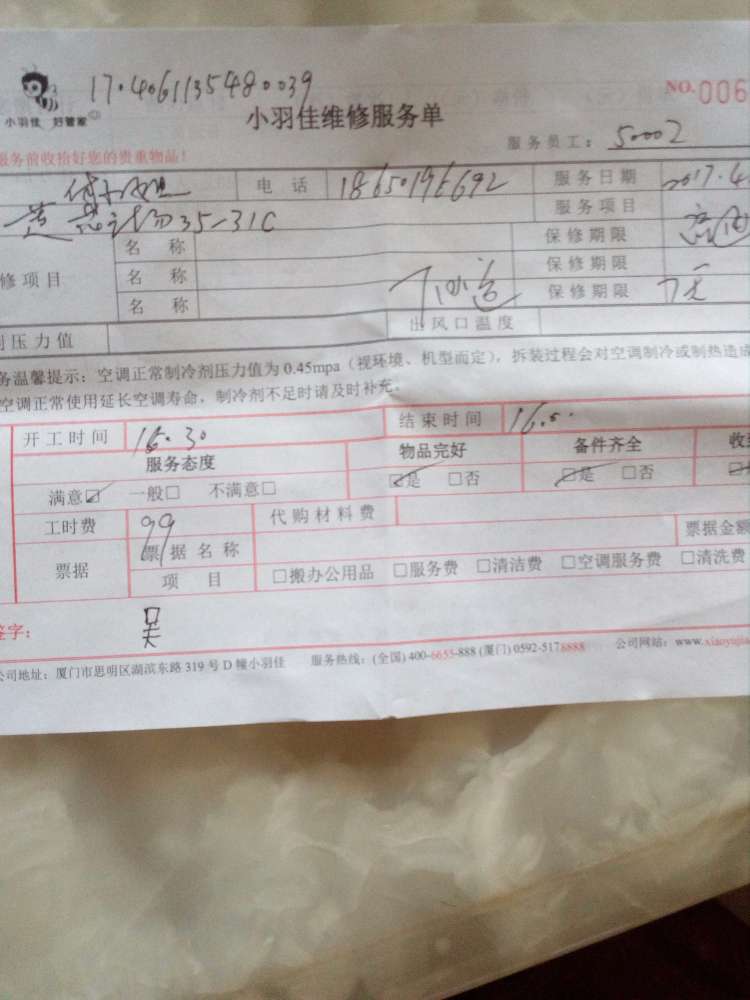 17.4061135480039
小羽佳 好管家
小羽佳维修服务单
NO.006
服务员工: 50002
服务前收拾好您的贵重物品!
电话 18650196692 服务日期 2017.4
35-31C 服务项目
修项目 名称 保修期限
名称 保修期限
名称 保修期限 7天
压力值 出风口温度
务温馨提示: 空调正常制冷剂压力值为0.45mpa(视环境、机型而定),拆装过程会对空调制冷或制热造成
空调正常使用延长空调寿命,制冷剂不足时请及时补充。
开工时间 16.30 结束时间 16.5
服务态度 物品完好 备件齐全 收
满意☑ 一般□ 不满意□ ☑是 □否 ☑是 □否
工时费 99 代购材料费
票据 票据名称 票据金额
项目 □搬办公用品 □服务费 □清洁费 □空调服务费 □清洗费
签字: 吴
公司地址: 厦门市思明区湖滨东路319号D幢小羽佳 服务热线: (全国) 400-6655-888 (厦门) 0592-5178888 公司网站: www.xiaoyujia